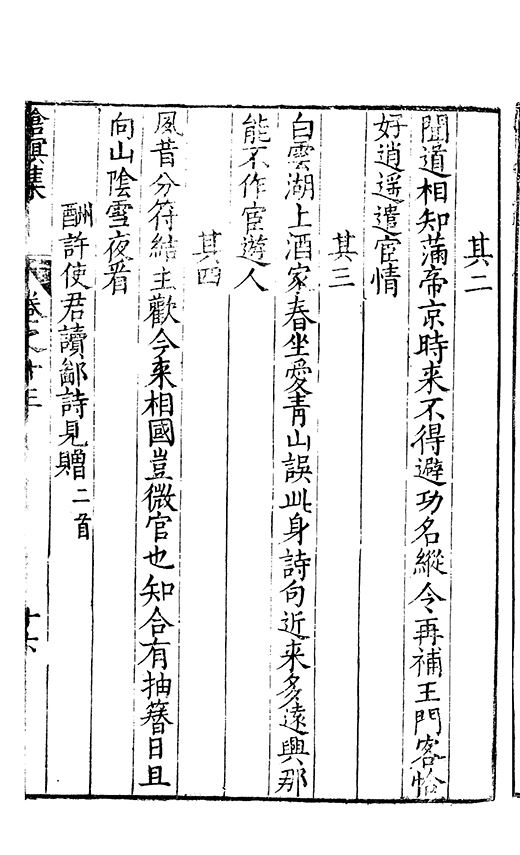 其二
聞道相知滿帝京時来不得避功名縱令再補王門客恰
好逍遥遣宦情
其三
白雲湖上酒家春坐愛青山誤此身詩句近来多遠興那
能不作宦遊人
其四
夙昔分符結主歡今来相國豈微官也知合有抽簮日且
向山陰雪夜看
酬許使君讀鄙詩見贈二首
滄溟集
卷之十三
十六